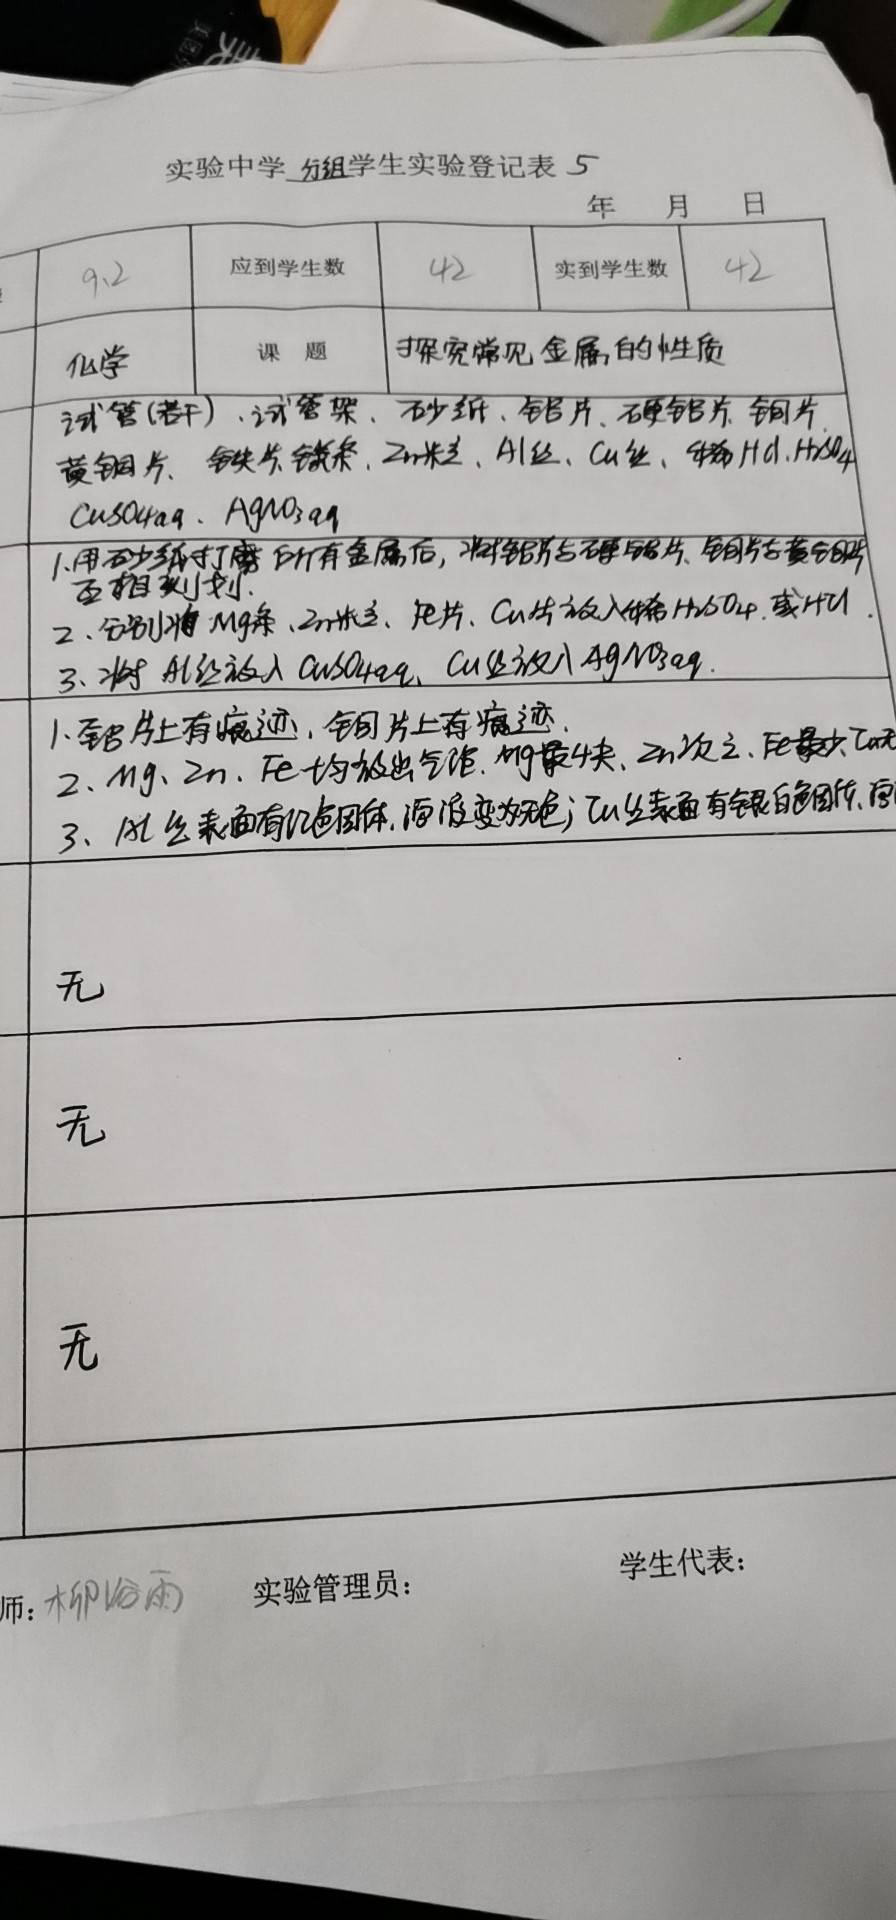 实验中学 分组学生实验登记表 5
年 月 日
9.2 应到学生数 42 实到学生数 42
化学 课 题 探究常见金属的性质
试管(若干)、试管架、砂纸、铝片、硬铝片、铜片、
黄铜片、铁片、镁条、Zn粒、Al丝、Cu丝、稀HCl、H2SO4
CuSO4aq、AgNO3aq
1.用砂纸打磨所有金属后,将铝片与硬铝片、铜片与黄铜片
互相刻划.
2、分别将Mg条、Zn粒、Fe片、Cu片放入稀H2SO4或HCl.
3、将Al丝放入CuSO4aq、Cu丝放入AgNO3aq.
1.铝片上有痕迹,铜片上有痕迹.
2、Mg、Zn、Fe均放出气泡.Mg最快、Zn次之、Fe最少、Cu无
3、Al丝表面有红色固体,溶液变为无色;Cu丝表面有银白色固体,溶
无
无
无
学生代表:
师: 柳 雨 实验管理员: